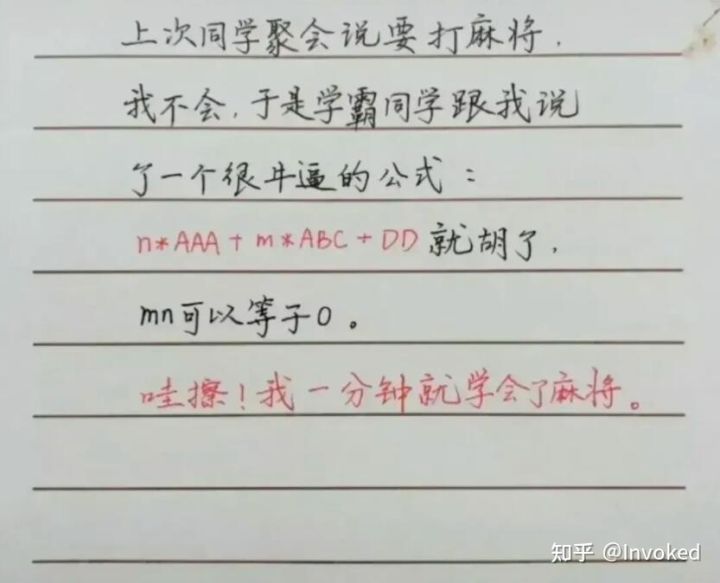 上次同学聚会说要打麻将.
我不会,于是学霸同学跟我说
了一个很牛逼的公式:
n*AAA+m*ABC+DD就胡了,
mn可以等于0。
哇擦!我一分钟就学会了麻将。
知乎 @Invoked